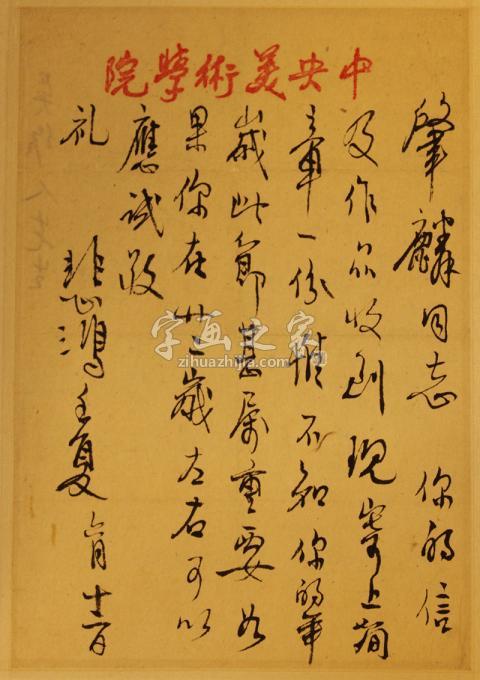 中央美術學院
肇麟同志 你的信
及作品收到 現寄上簡
章一份 惟不知你的年
歲 此節甚屬重要 如
果你在廿二歲左右可以
應試 敬
礼
悲鴻 壬夏 六月十二日
字画之家
zihuazhijia.com